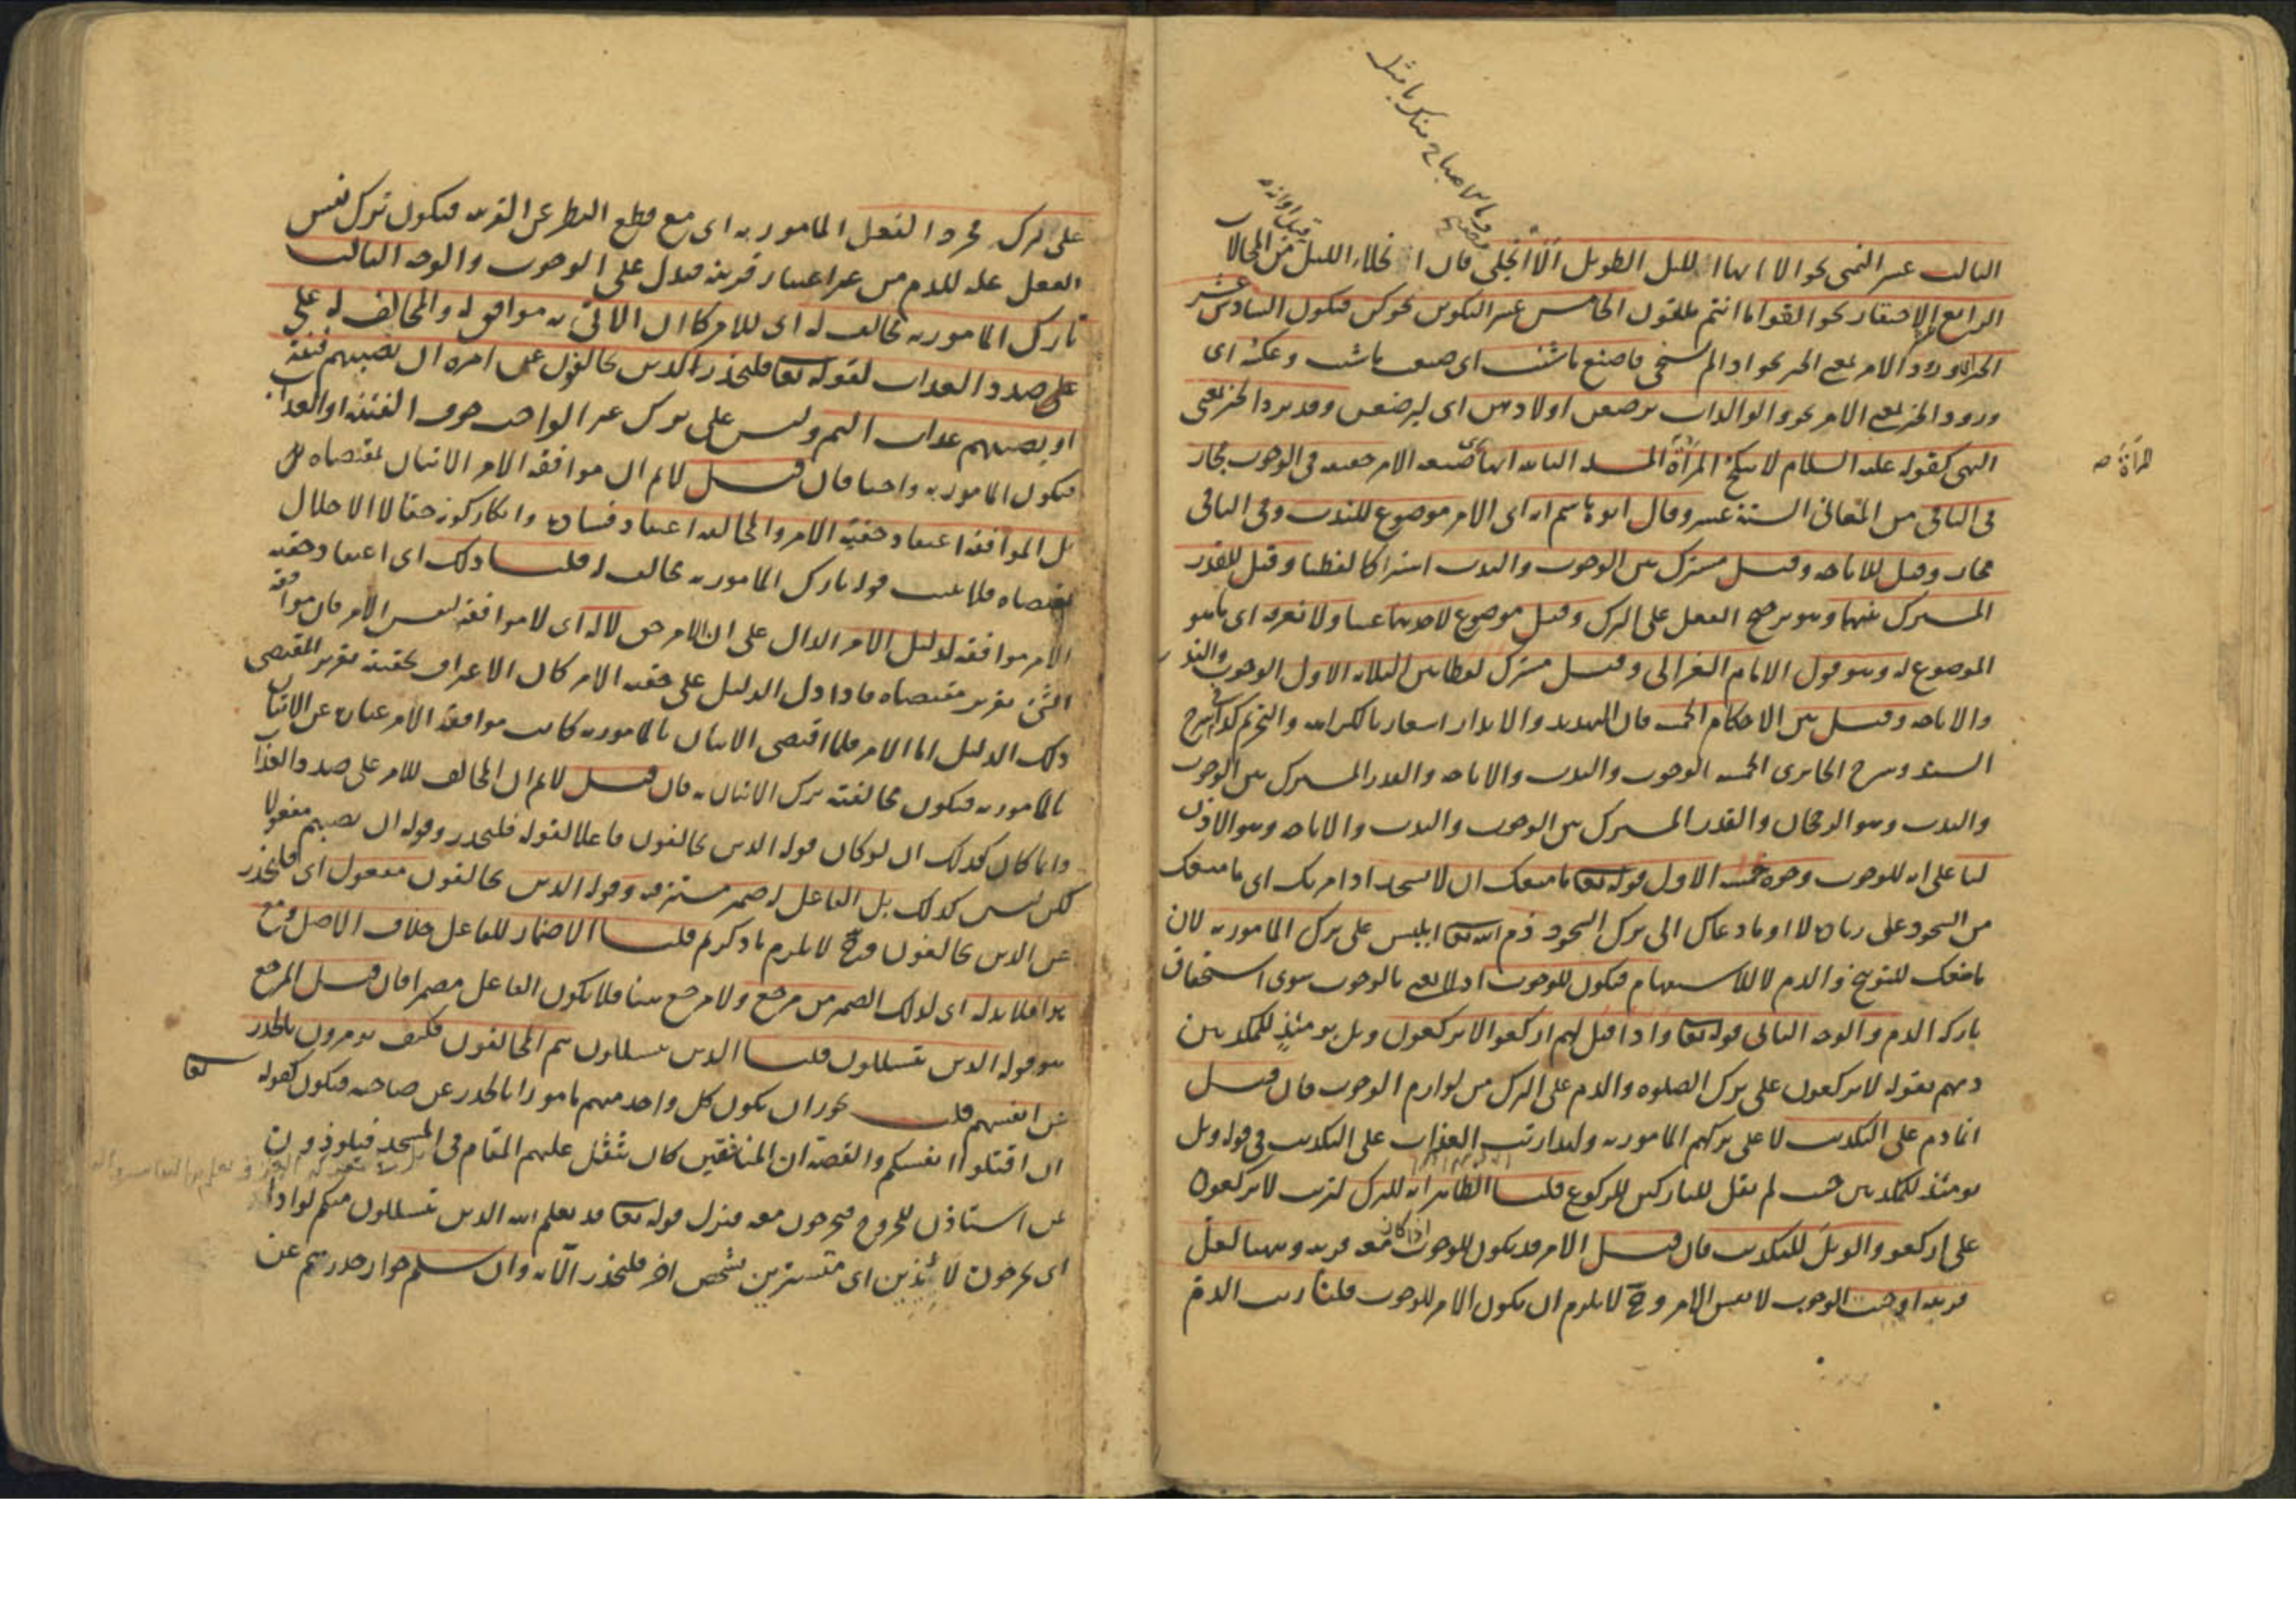 وما الاصباح منك بامثل
الثالث عشر التمنى نحو الا ايها الليل الطويل الا انجلى فان انجلاء الليل من المحالات
الرابع الاحتقار نحو القوا ما انتم ملقون الخامس عشر التكوين نحو كن فيكون السادس عشر
الخبر ورود الامر بمعنى الخبر نحو اذا لم تستحى فاصنع ما شئت اى صنعت ما شئت وعكسه اى
ورود الخبر بمعنى الامر نحو والوالدات يرضعن اولادهن اى ليرضعن وقد يرد الخبر بمعنى
النهى كقوله عليه السلام لا ينكح المرأة المرأة الثانيه انها اى صيغه الامر حقيقه فى الوجوب مجاز
المرأة صح
فى الباقى من المعانى الستة عشر وقال ابو هاشم انه اى الامر موضوع للندب وفى الباقى
مجاز وقيل للاباحه وقيل مشترك بين الوجوب والندب اشتراكا لفظيا وقيل للقدر
المشترك بينهما وهو ترجيح الفعل على الترك وقيل موضوع لاحدهما عينا ولا نعرفه اى ما هو
الموضوع له وهو قول الامام الغزالى وقيل مشترك لفظا بين الثلاثه الاول الوجوب والندب
والاباحه وقيل بين الاحكام الخمسه فان التهديد والانذار اشعار بالكراهه والتحريم كذا فى شرح
السيد وشرح الجابردى الخمسه الوجوب والندب والاباحه والقدر المشترك بين الوجوب
والندب وهو الرجحان والقدر المشترك بين الوجوب والندب والاباحه وهو الاذن
لنا على انه للوجوب وجوه خمسه الاول قوله تعا ما منعك ان لا تسجد اذ امرتك اى ما منعك
من السجود على زيادة لا او ما دعاك الى ترك السجود ذم الله تعا ابليس على ترك المامور به لان
ما منعك للتوبيخ والذم لا للاستفهام فيكون للوجوب اذ لا نعنى بالوجوب سوى استحقاق
تاركه الذم والوجه الثانى قوله تعا واذا قيل لهم اركعوا لا يركعون ويل يومئذ للمكذبين
ذمهم بقوله لا يركعون على ترك الصلوه والذم على الترك من لوازم الوجوب فان قيل
انما ذم على التكذيب لا على تركهم المامور به ولهذا رتب العذاب على التكذيب فى قوله ويل
يومئذ للمكذبين حيث لم يقل للتاركين للركوع قلنا الظاهر انه للترك لترتب لا يركعون
على اركعوا والويل للتكذيب فان قيل الامر قد يكون للوجوب اذا كان معه قرينه وههنا لعل
قرينه اوجبت الوجوب لا نفس الامر وح لا يلزم ان يكون الامر للوجوب قلنا رتب الذم
على ترك مجرد الفعل المامور به اى مع قطع النظر عن القرينه فيكون ترك نفس
الفعل عله للذم من غير اعتبار قرينه فدل على الوجوب والوجه الثالث
تارك المامور به مخالف له اى للامر كما ان الاتى به موافق له والمخالف له على
على صدد العذاب لقوله تعا فليحذر الذين يخالفون عن امره ان تصيبهم فتنة
او يصيبهم عذاب اليم وليس على ترك غير الواجب خوف الفتنه او العذاب
فيكون المامور به واجبا فان قيل لا نم ان موافقه الامر الاتيان بمقتضاه
بل الموافقه اعتقاد حقية الامر والمخالفه اعتقاد فساده وانكار كونه حقا لا الاخلال
بمقتضاه فلا يثبت قوله تارك المامور به مخالف له قلنا ذلك اى اعتقاد حقيه
الامر موافقه لدليل الامر الدال على ان الامر حق لا له اى لا موافقه لنفس الامر فان موافقه
الشئ تقرير مقتضاه فاذا دل الدليل على حقيه الامر كان الاعتراف بحقيته تقرير المقتضى
ذلك الدليل اما الامر فلما اقتضى الاتيان بالمامور به كانت موافقة الامر عبارة عن الاتيان
بالمامور به فيكون مخالفته ترك الاتيان به فان قيل لا نم ان المخالف للامر على صدد العذاب
وانما كان كذلك ان لو كان قوله الذين يخالفون فاعلا لقوله فليحذر وقوله ان تصيبهم مفعولا
لكن ليس كذلك بل الفاعل له ضمير مستتر فيه وقوله الذين يخالفون مفعول اى فليحذر
عن الذين يخالفون وح لا يلزم ما ذكرتم قلنا الاضمار للفاعل خلاف الاصل ومع
هذا فلا بد له اى لذلك الضمير من مرجع ولا مرجع هنا فلا يكون الفاعل مضمرا فان قيل المرجع
هو قوله الذين يتسللون قلنا الذين يتسللون هم المخالفون فكيف يومرون بالحذر
عن انفسهم قلت يجوز ان يكون كل واحد منهم مامورا بالحذر عن صاحبه فيكون كقوله تعا
ان اقتلوا انفسكم والقصة ان المنافقين كان يثقل عليهم المقام فى المسجد فيلوذون
عن استاذن للخروج فيخرجون معه فنزل قوله تعا قد يعلم الله الذين يتسللون منكم لواذا
اى يخرجون لائذين اى متسترين بشخص اخر فليحذر الآيه وان سلم جواز حذرهم عن